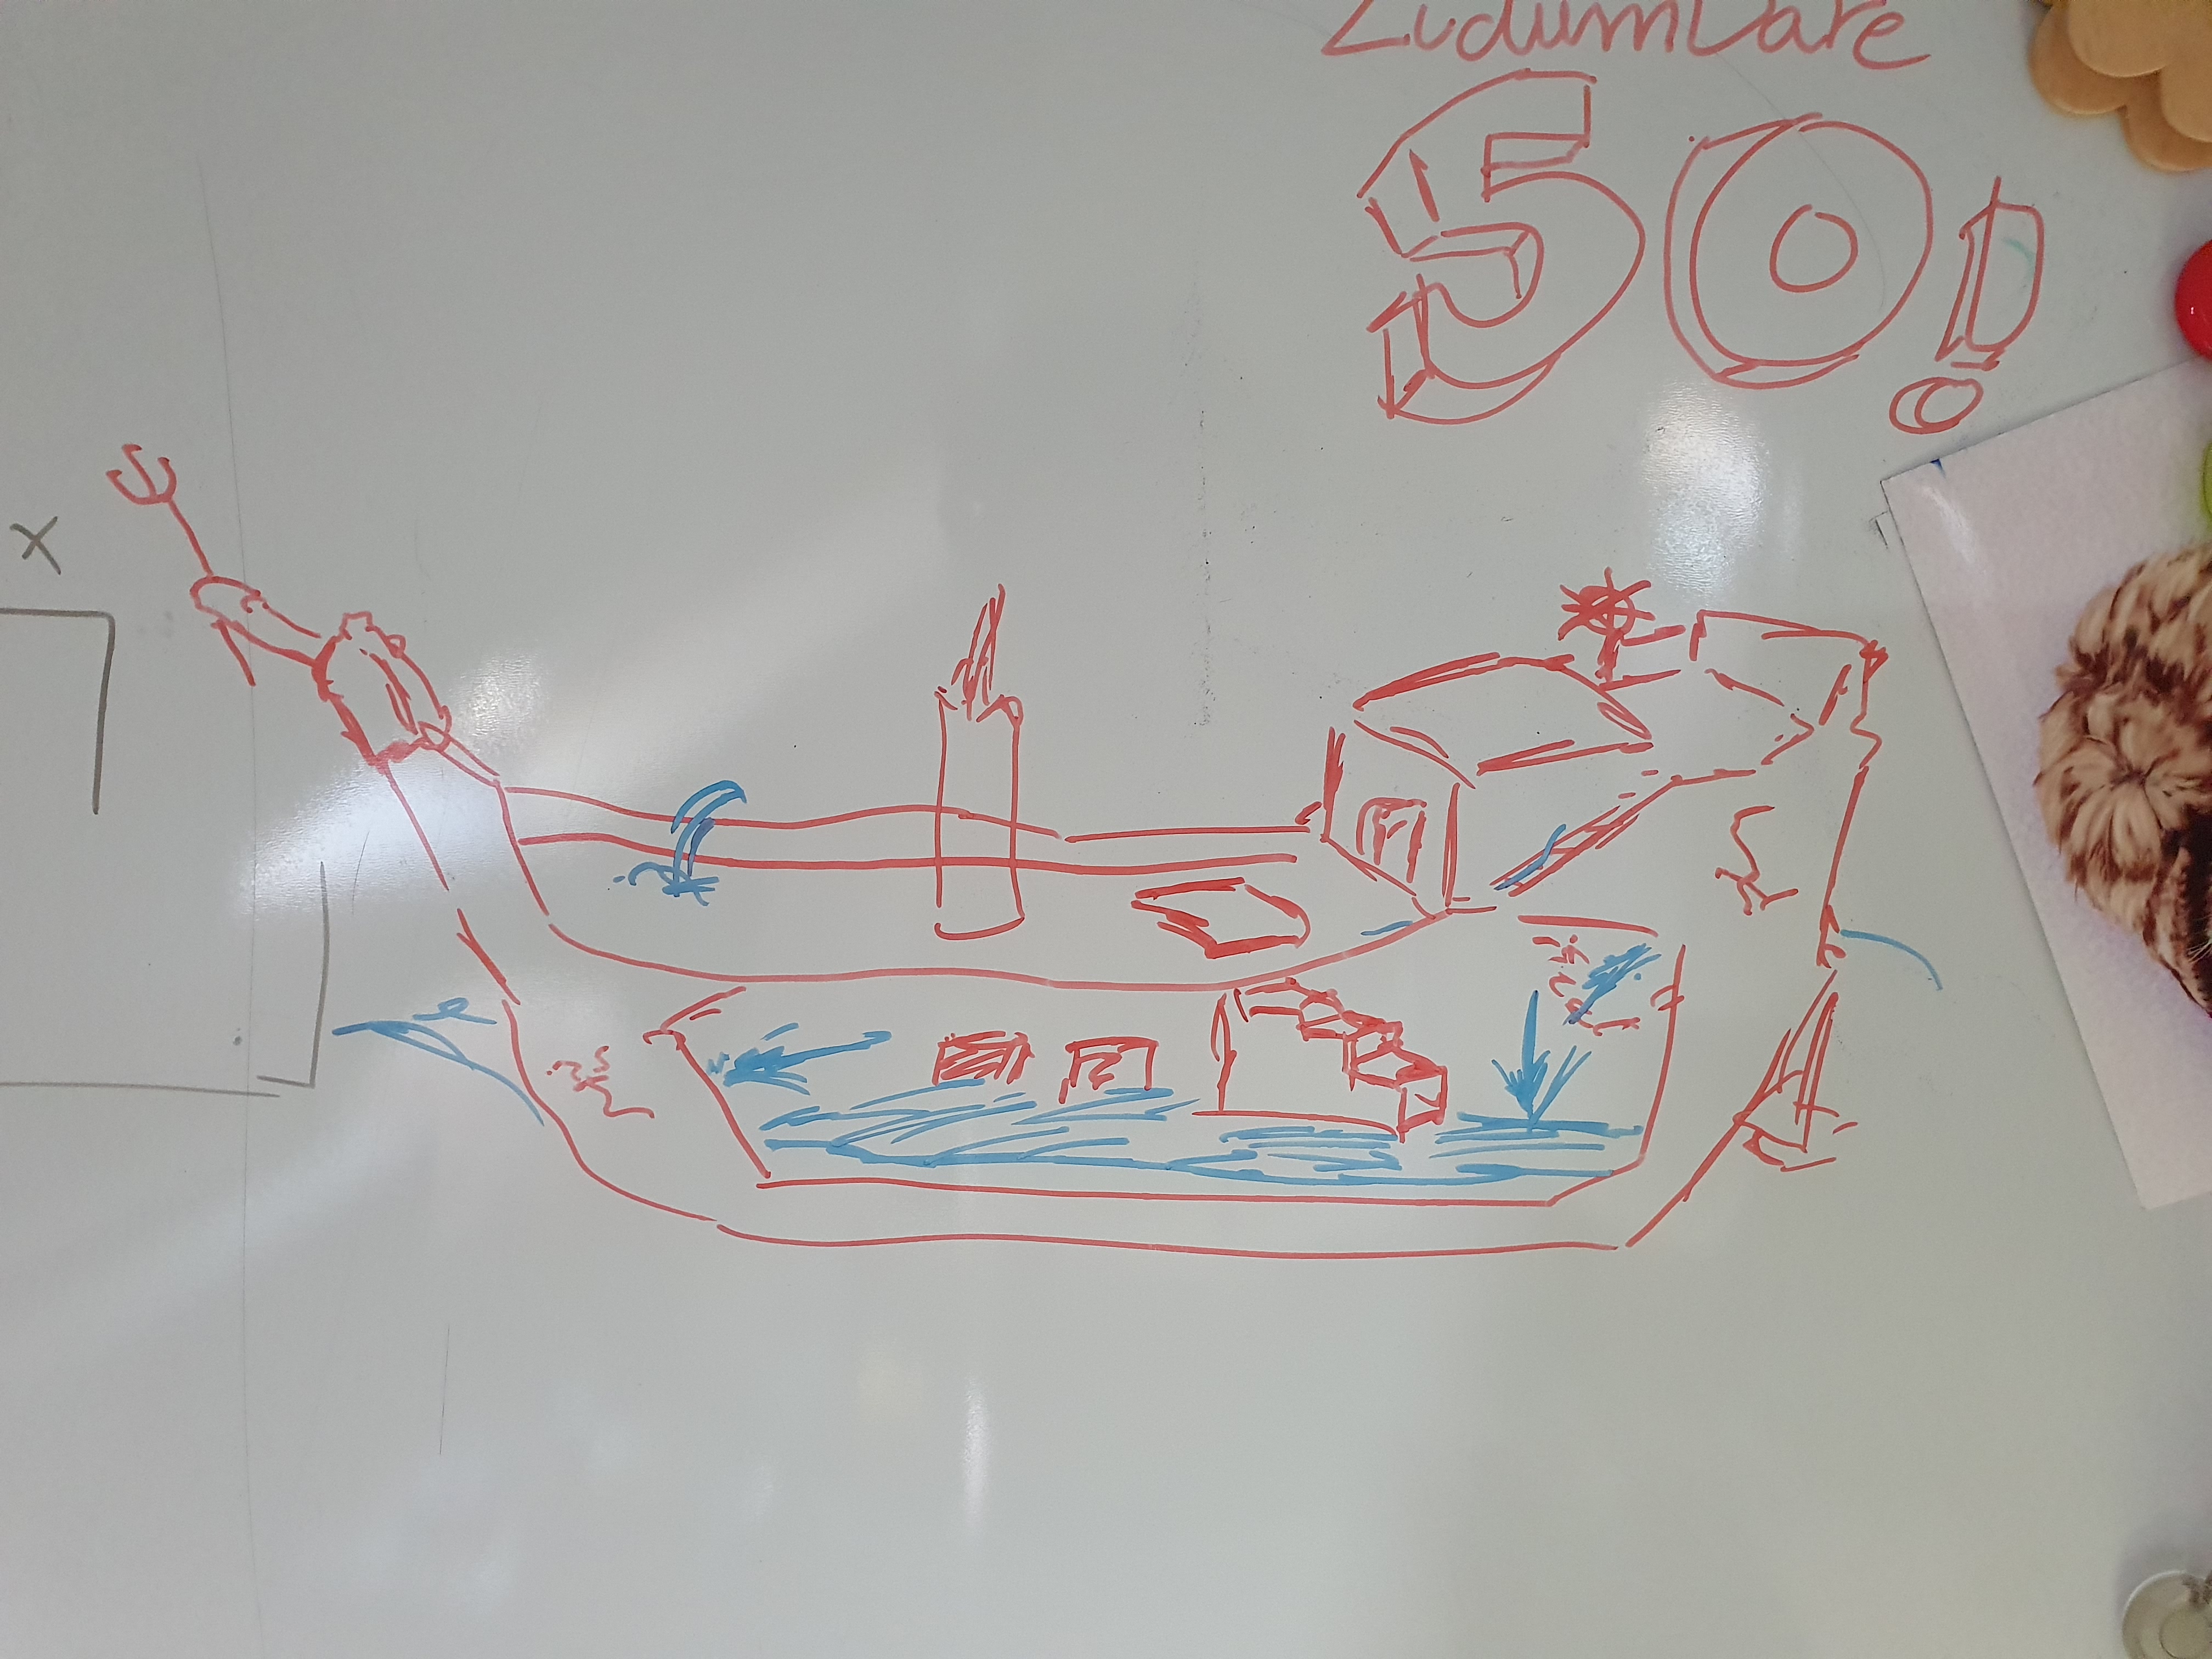 LudumDare
50!
X